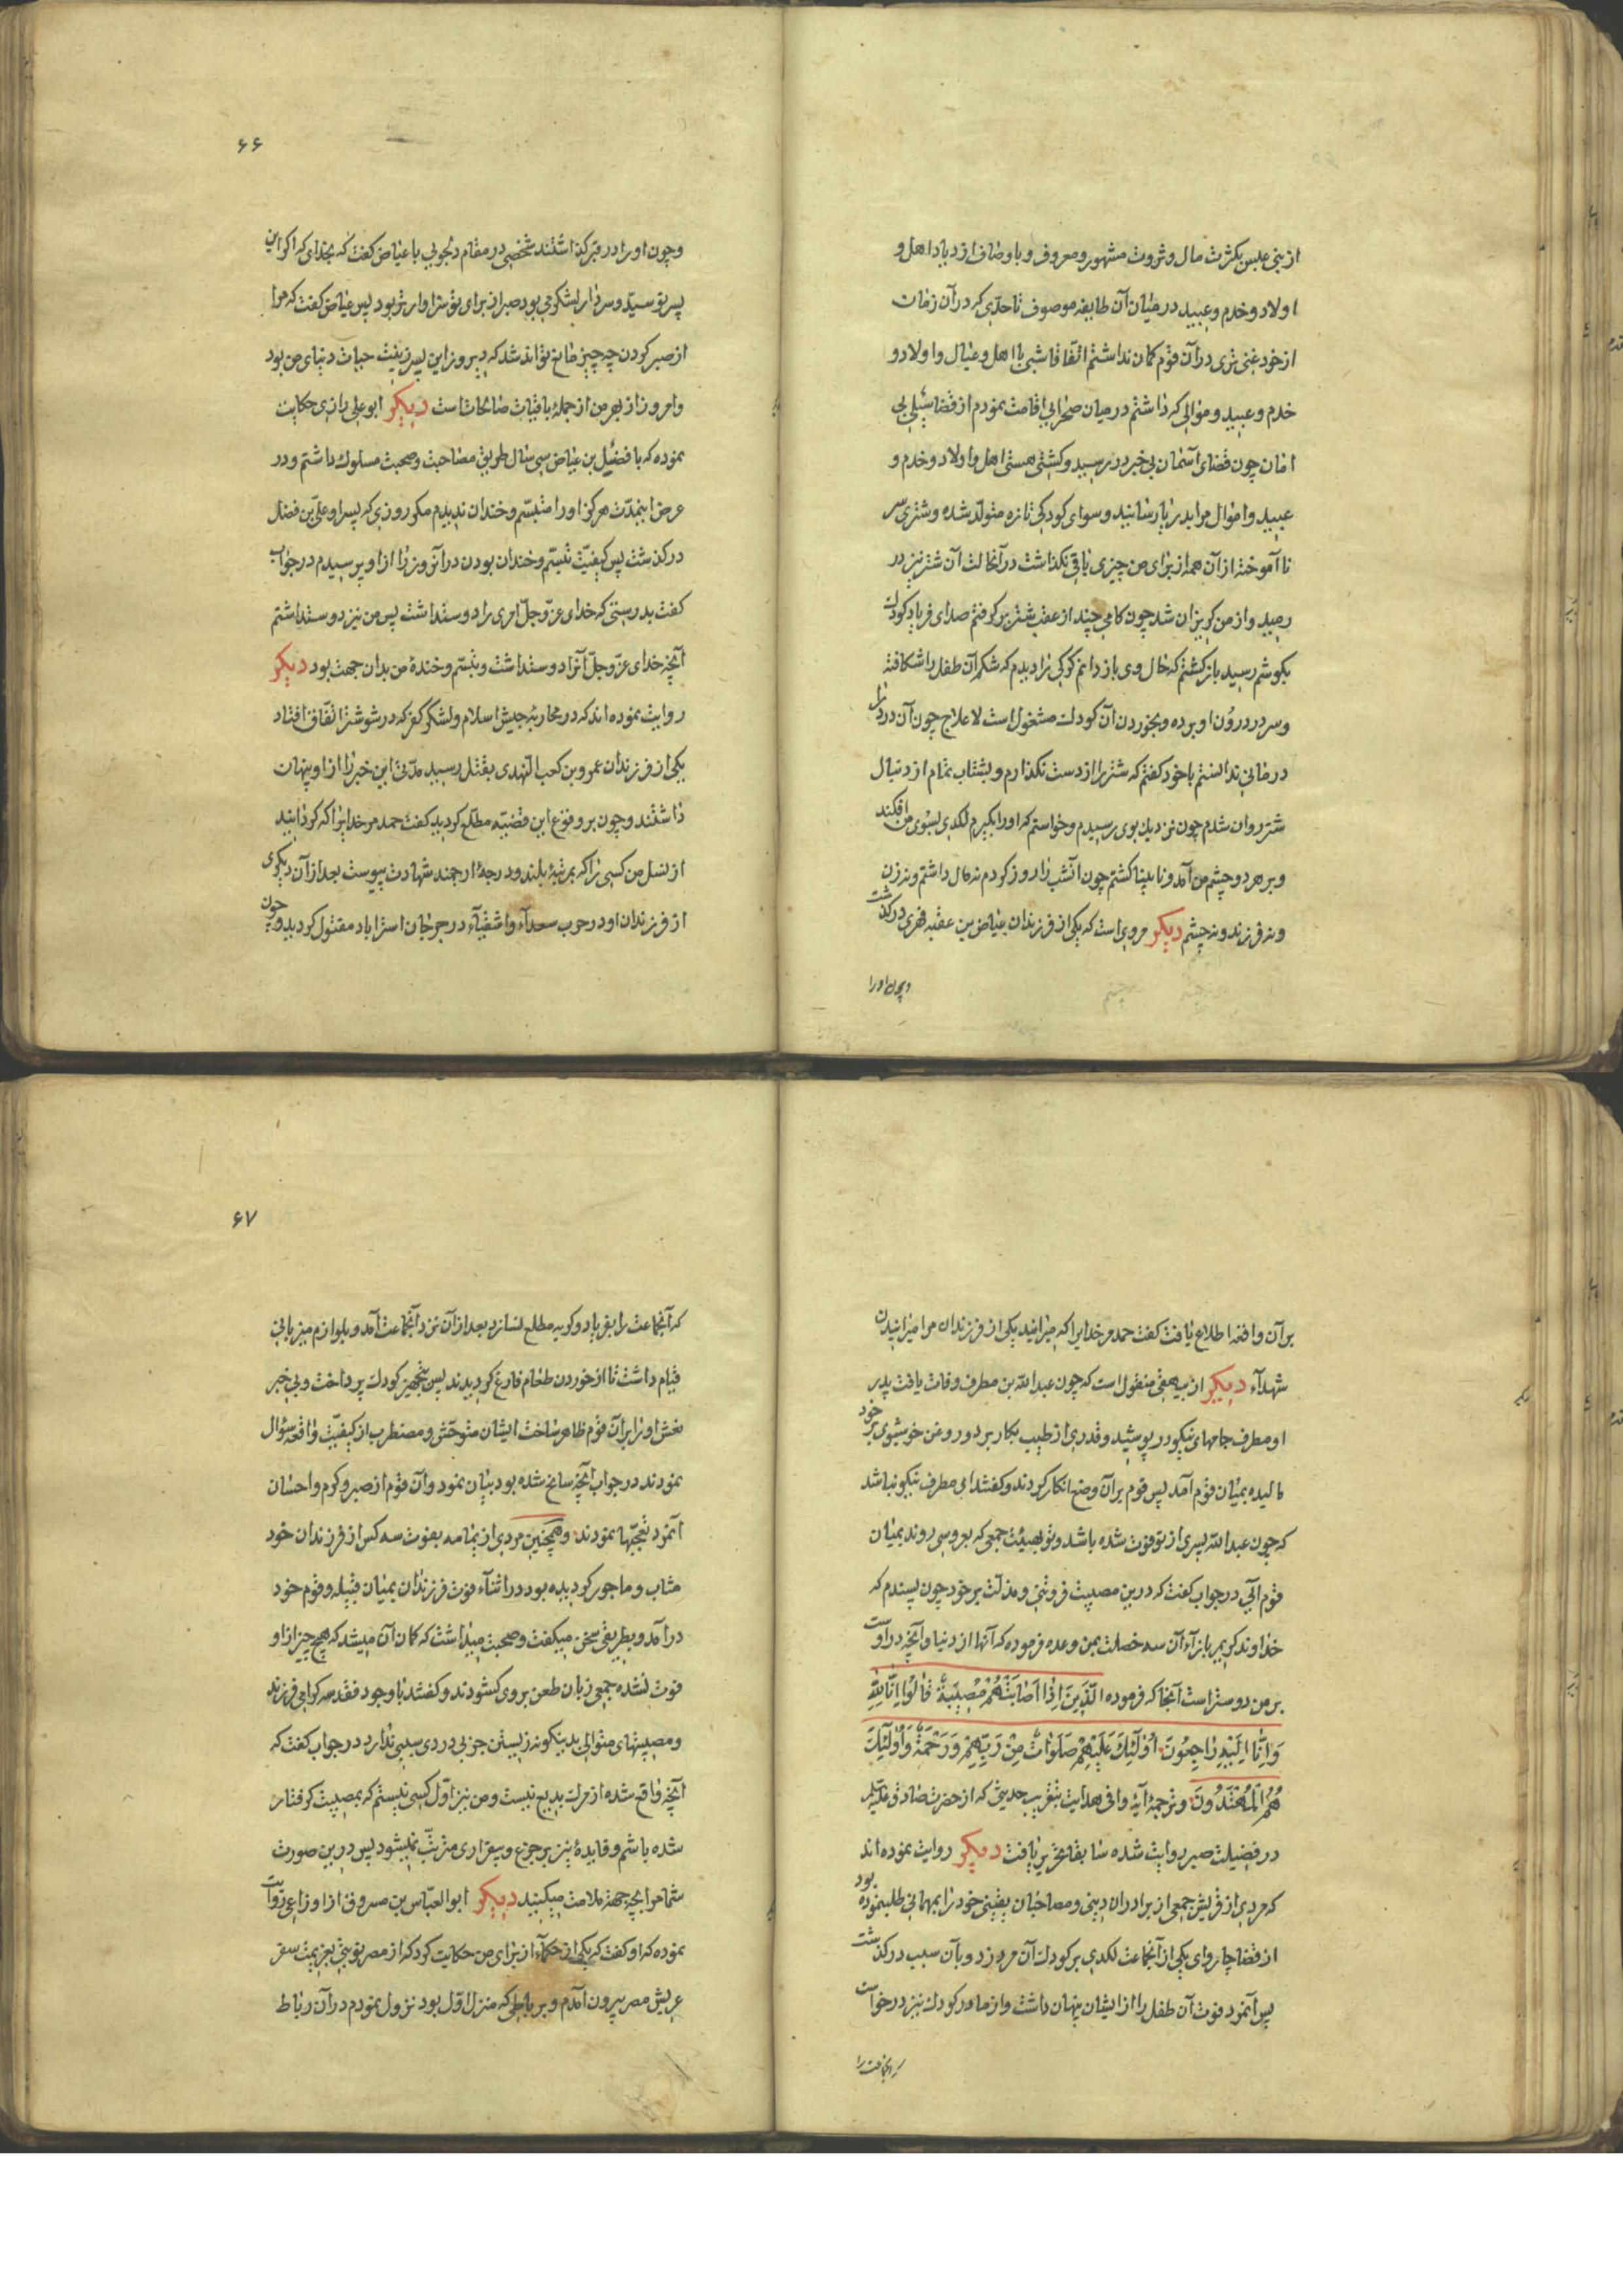 از بنی عبس بکثرت مال و ثروت مشهور و معروف و باوصاف ازدیاد اهل و
اولاد و خدم و عبید در میان آن طایفه موصوف تا حدّی که در آن زمان
از خود غنی تری در آن قوم کمان نداشتم اتفاقا شبی با اهل و عیال و اولاد و
خدم و عبید و موالی که داشتم در میان صحرایی اقامت نمودم از قضا سیلی بی
امان چون قضای آسمان بی خبر در رسید و کشتی هستی اهل و اولاد و خدم و
عبید و اموال مرا بدریا رسانید و سوای کودکی تازه متولّد شده و شتری سر
ناآموخته از آن همه از برای من چیزی باقی نکذاشت در آنحالت آن شتر نیز در
رمید و از من کریزان شد چون کامی چند از عقب شتر برکرفتم صدای فریاد کودک
بکوشم رسید بازکشتم که حال وی باز دانم کرکی را دیدم که شکم آن طفل را شکافته
و سر در درون او برده و بخوردن آن کودک مشغول است لاعلاج چون آن درد را
درمانی ندانستم با خود کفتم که شتر را از دست نکذارم و بشتاب تمام از دنبال
شتر روان شدم چون نزدیک بوی رسیدم و خواستم که او را بکیرم لکدی بسوی من افکند
و بر هر دو چشم من آمد و نابینا کشتم چون آنشب را روز کردم نه مال داشتم و نه زن
و نه فرزند و نه چشم دیکر مرویست که یکی از فرزندان عیاض بن عقبه فهری درکذشت
و چون او را
۶۶
و چون او را در قبر کذاشتند شخصی در مقام دلجویی با عیاض کفت که بخدای که اکر این
پسر تو سیّد و سردار لشکر می بود صبر از برای تو سزاوارتر بود پس عیاض کفت که مرا
از صبر کردن چه چیز مانع تواند شد که دیروز این پسر زینت حیات دنیای من بود
و امروز از بهر من از جملهٔ باقیات صالحات است دیکر ابوعلی رازی حکایت
نموده که با فضیل بن عیاض سی سال طریق مصاحبت و صحبت مسلوک داشتم و در
عرض اینمدّت هرکز او را متبسّم و خندان ندیدم مکر روزی که پسر او علی بن فضل
درکذشت پس کیفیّت تبسّم و خندان بودن در آنروز را از او پرسیدم در جواب
کفت بدرستی که خدای عزّ و جلّ امری را دوست داشت پس من نیز دوست داشتم
آنچه خدای عزّ و جلّ آنرا دوست داشت و تبسّم و خندهٔ من بدان جهت بود دیکر
روایت نموده اند که در محاربهٔ جیش اسلام و لشکر کفر که در شوشتر اتّفاق افتاد
یکی از فرزندان عمرو بن کعب النهدی بقتل رسید مدّتی این خبر را از او پنهان
داشتند و چون بر وقوع این قضیّه مطلع کردید کفت حمد مر خدایرا که کردانید
از نسل من کسی را که بمرتبهٔ بلند و درجهٔ ارجمند شهادت پیوست بعد از آن دیکری
از فرزندان او در حرب سعدآء و اشقیآء در جرجان استراباد مقتول کردید و چون
بر آن واقعه اطلاع یافت کفت حمد مر خدایرا که میرانید یکی از فرزندان مرا میرانیدن
شهدآء دیکر از بیهقی منقول است که چون عبدالله بن مطرف وفات یافت پدر
او مطرف جامهای نیکو در پوشید و قدری از طیب بکار برد و روغن خوشبوی بر خود
مالیده بمیان قوم آمد پس قوم بر آن وضع انکار کردند و کفتند ای مطرف نیکو نباشد
که چون عبدالله پسری از تو فوت شده باشد و تو بهیئت جمعی که بعروسی روند بمیان
قوم آیی در جواب کفت که درین مصیبت فروتنی و مذلّت بر خود چون پسندم که
خداوند کریم بازآء آن سه خصلت بمن وعده فرموده که آنها از دنیا و آنچه در اوست
بر من دوستر است آنجا که فرموده الَّذِينَ اِذَا اَصَابَتْهُمْ مُصِيبَةٌ قَالُوا اِنَّا لِلّٰهِ
وَاِنَّا اِلَيْهِ رَاجِعُونَ اُولٰئِكَ عَلَيْهِمْ صَلَوَاتٌ مِنْ رَبِّهِمْ وَرَحْمَةٌ وَاُولٰئِكَ
هُمُ الْمُهْتَدُونَ و ترجمهٔ آیهٔ وافی هدایت بتقریب حدیثی که از حضرت صادق علیه السلم
در فضیلت صبر روایت شده سابقا تحریر یافت دیکر روایت نموده اند
که مردی از قریش جمعی از برادران دینی و مصاحبان یقینی خود را بمهمانی طلب نموده بود
از قضا چاروای یکی از آنجماعت لکدی بر کودک آن مرد زد و بآن سبب درکذشت
پس آنمرد فوت آن طفل را از ایشان پنهان داشت و از مادر کودک نیز درخواست
که آنجماعت را
۶۷
که آنجماعت را بفریاد و کریه مطلع نسازد بعد از آن نزد آنجماعت آمد و بلوازم میزبانی
قیام داشت تا از خوردن طعام فارغ کردیدند پس بتجهیز کودک پرداخت و بی خبر
نعش او را بر آن قوم ظاهر ساخت ایشان متوحّش و مضطرب از کیفیّت واقعه سؤال
نمودند در جواب آنچه سانح شده بود بیان نمود و آن قوم از صبر و کرم و احسان
آنمرد تعجّبها نمودند و همچنین مردی از یمامه بفوت سه کس از فرزندان خود
مثاب و ماجور کردیده بود در اثنآء فوت فرزندان بمیان قبیله و قوم خود
درآمد و بطریقی سخن میکفت و صحبت میداشت که کمان آن میشد که هیچ چیز از او
فوت نشده جمعی زبان طعن بروی کشودند و کفتند با وجود فقد سه کرامی فرزند
و مصیبتهای متوالی بدینکونه زیستن جز بی دردی سببی ندارد در جواب کفت که
آنچه واقع شده از مرک بدیع نیست و من نیز اوّل کسی نیستم که بمصیبت کرفتار
شده باشم و فایدهٔ نیز بر جزع و بیقراری مترتّب نمیشود پس درین صورت
شما مرا بچه جهة ملامت میکنید دیکر ابوالعباس بن مسروق از اوزاعی روایت
نموده که او کفت که یکی از حکمآء از برای من حکایت کرد که از مصر نوبتی بعزیمت سفر
عریش مصر بیرون آمدم و برباطی که منزل اوّل بود نزول نمودم در آن رباط